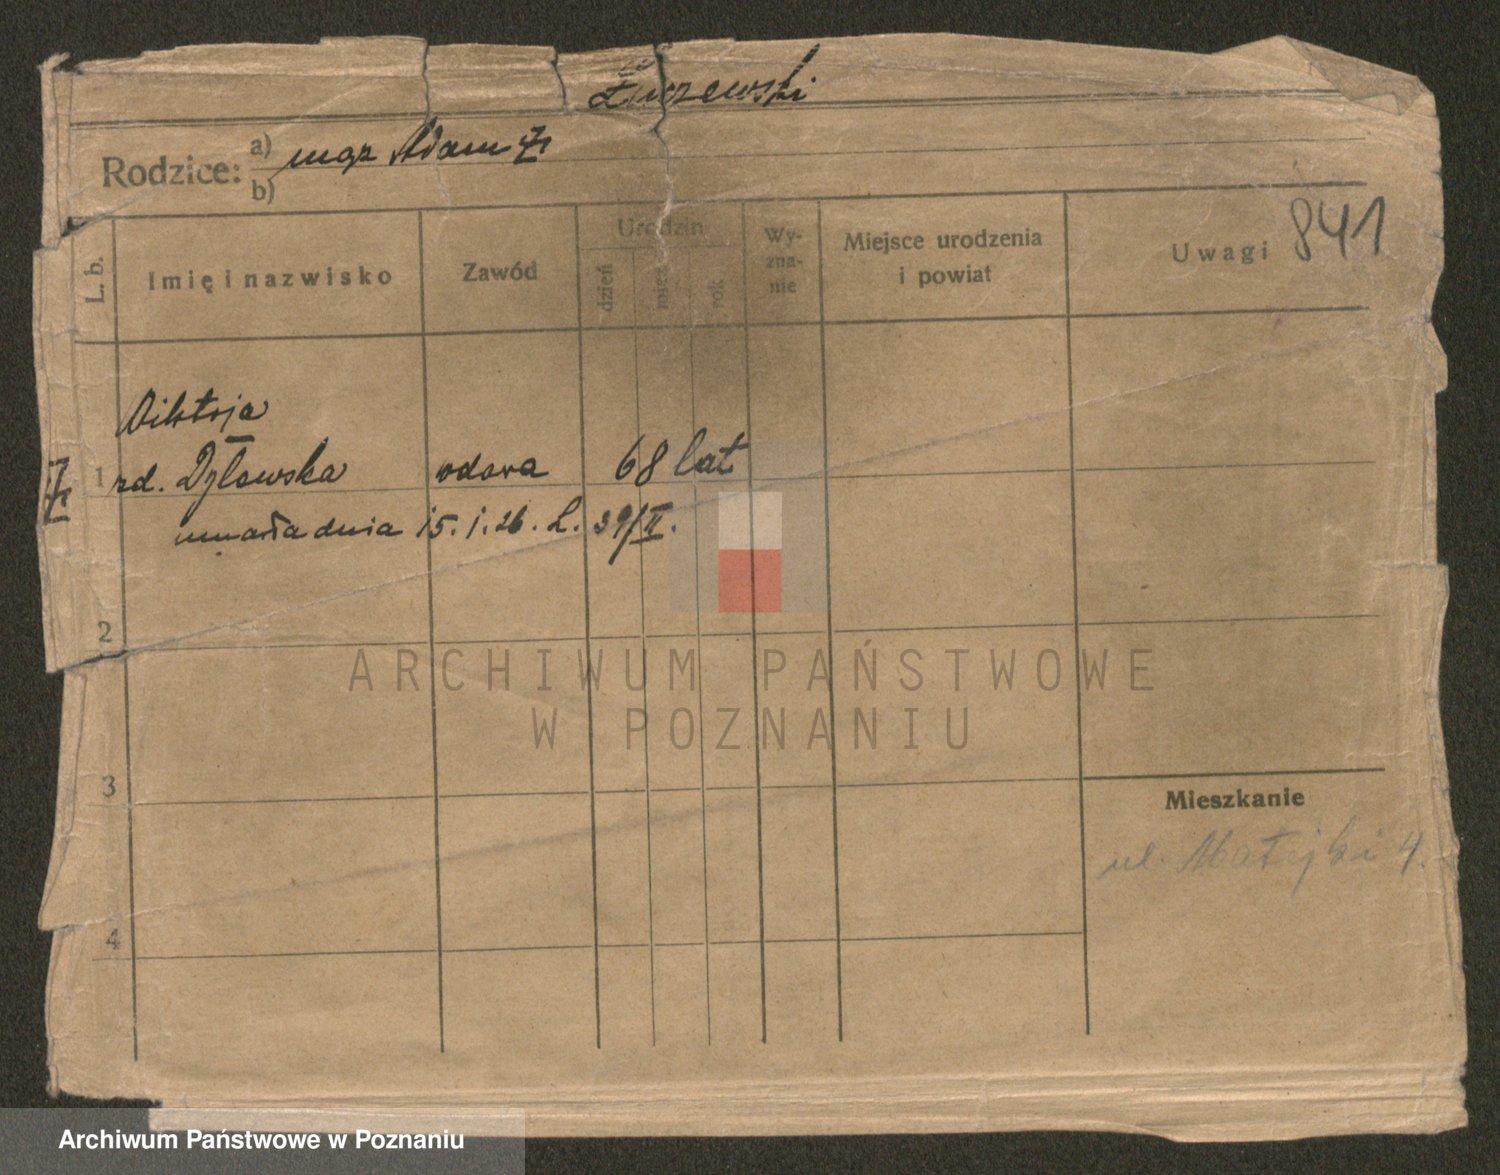 Żurzewski
Rodzice: a) mąż Adam
b)
841
L. b. Imię i nazwisko Zawód Urodzin Wy-zna-nie Miejsce urodzenia i powiat Uwagi
dzień mies. rok
Wiktorja
1 zd. Dyłowska wdowa 68 lat
umarła dnia 15.1.26. L. 39/II.
2
3
Mieszkanie
ul. Matejki 4.
4
ARCHIWUM PAŃSTWOWE
W POZNANIU
Archiwum Państwowe w Poznaniu